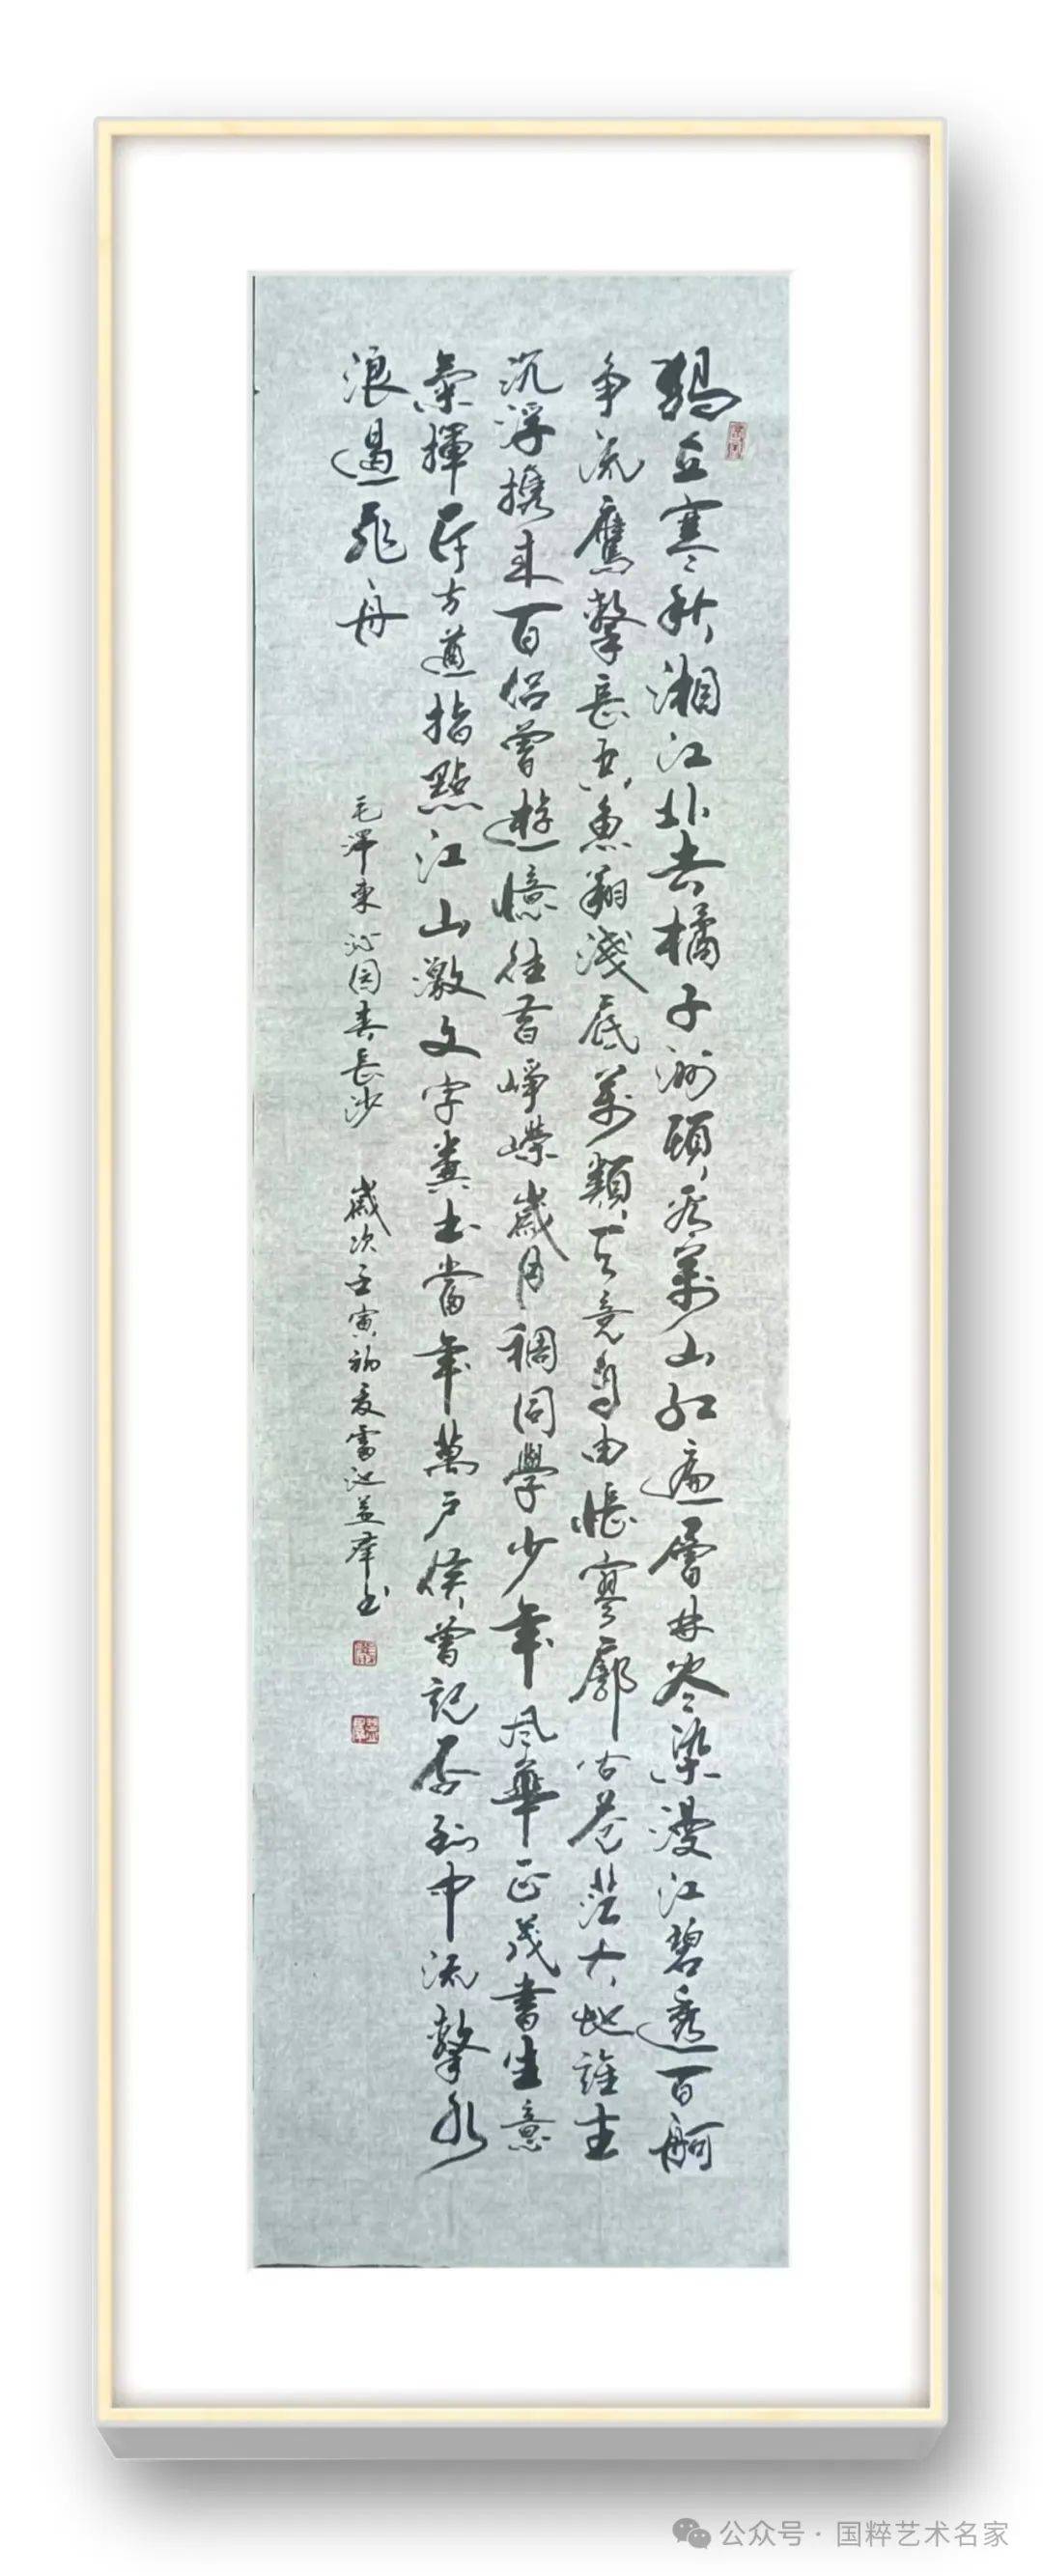 獨立寒秋湘江北去橘子洲頭看萬山紅遍層林盡染漫江碧透百舸
争流鷹擊長空魚翔淺底萬類天竟自由悵寥廓問蒼茫大地誰主
沉浮携來百侣曾遊憶往昔崢嶸歲月稠同學少年風華正茂書生意
氣揮斥方遒指點江山激文字糞土當年萬户侯曾記否到中流擊水
浪遏飛舟
毛澤東沁园春長沙 歲次壬寅初夏雷池益群书
公众号·国粹艺术名家